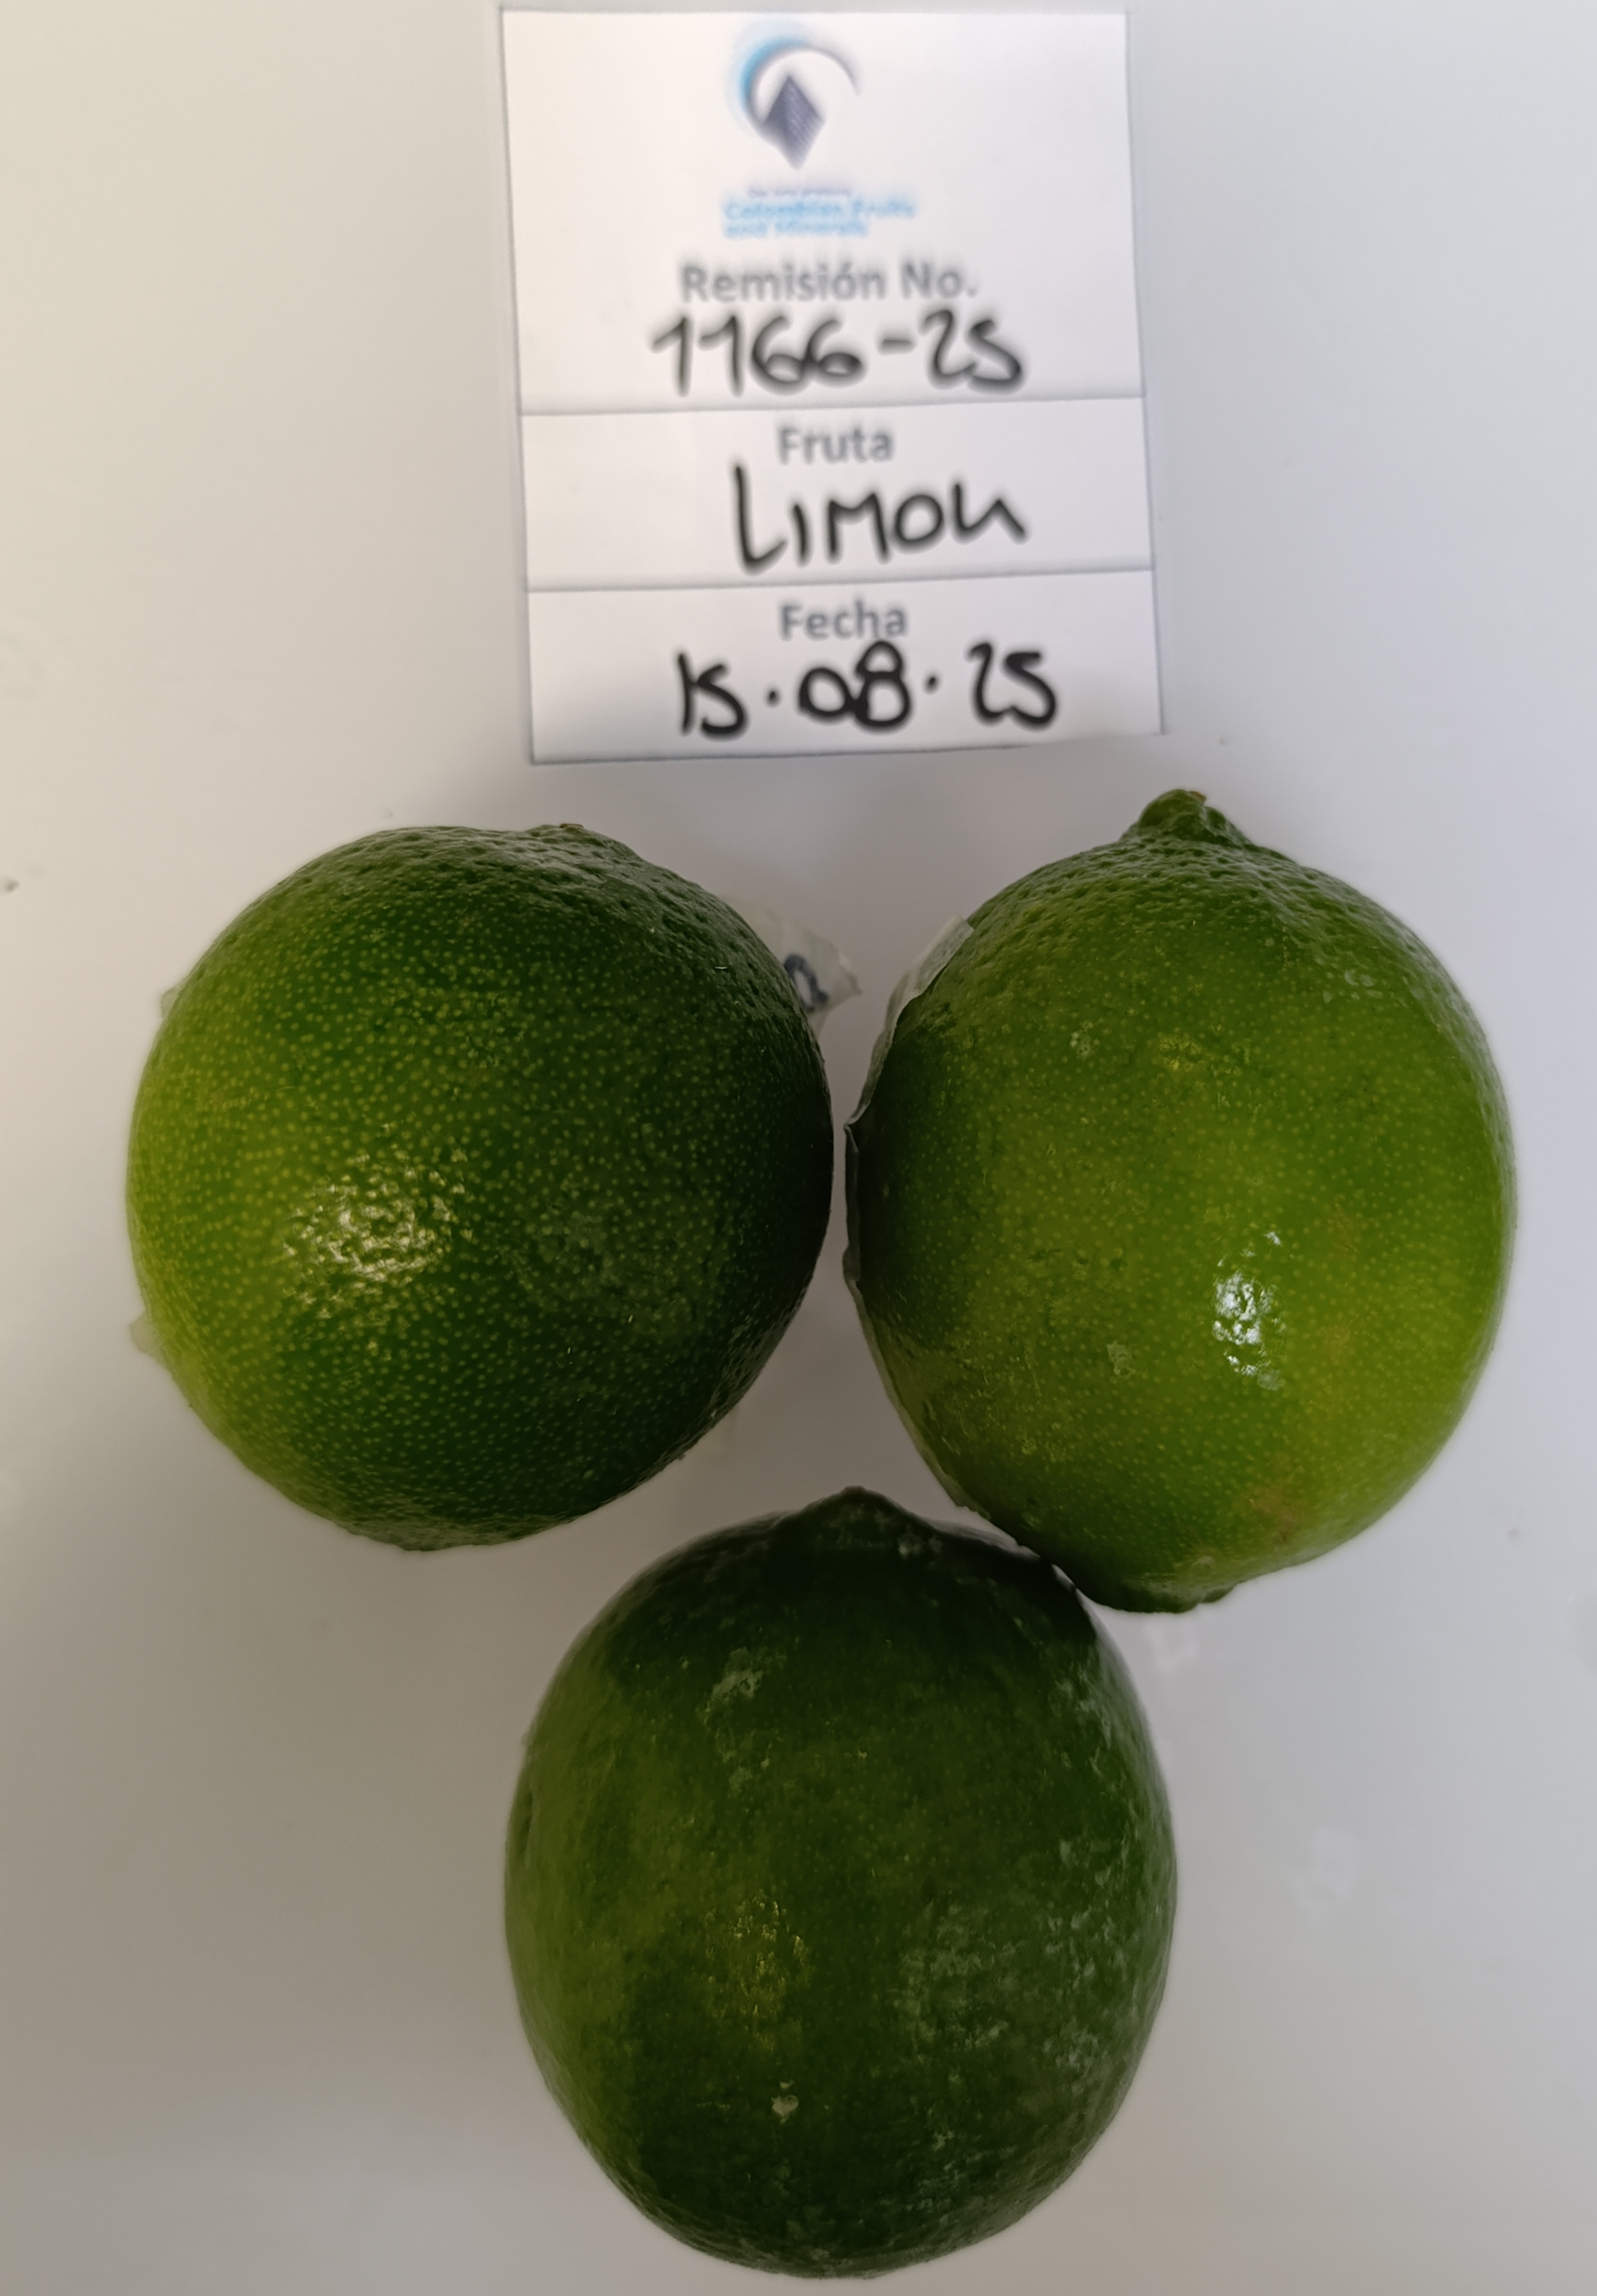 Colombian Fruits
and Minerals
Remisión No.
1166-25
Fruta
LIMON
Fecha
15.08.25